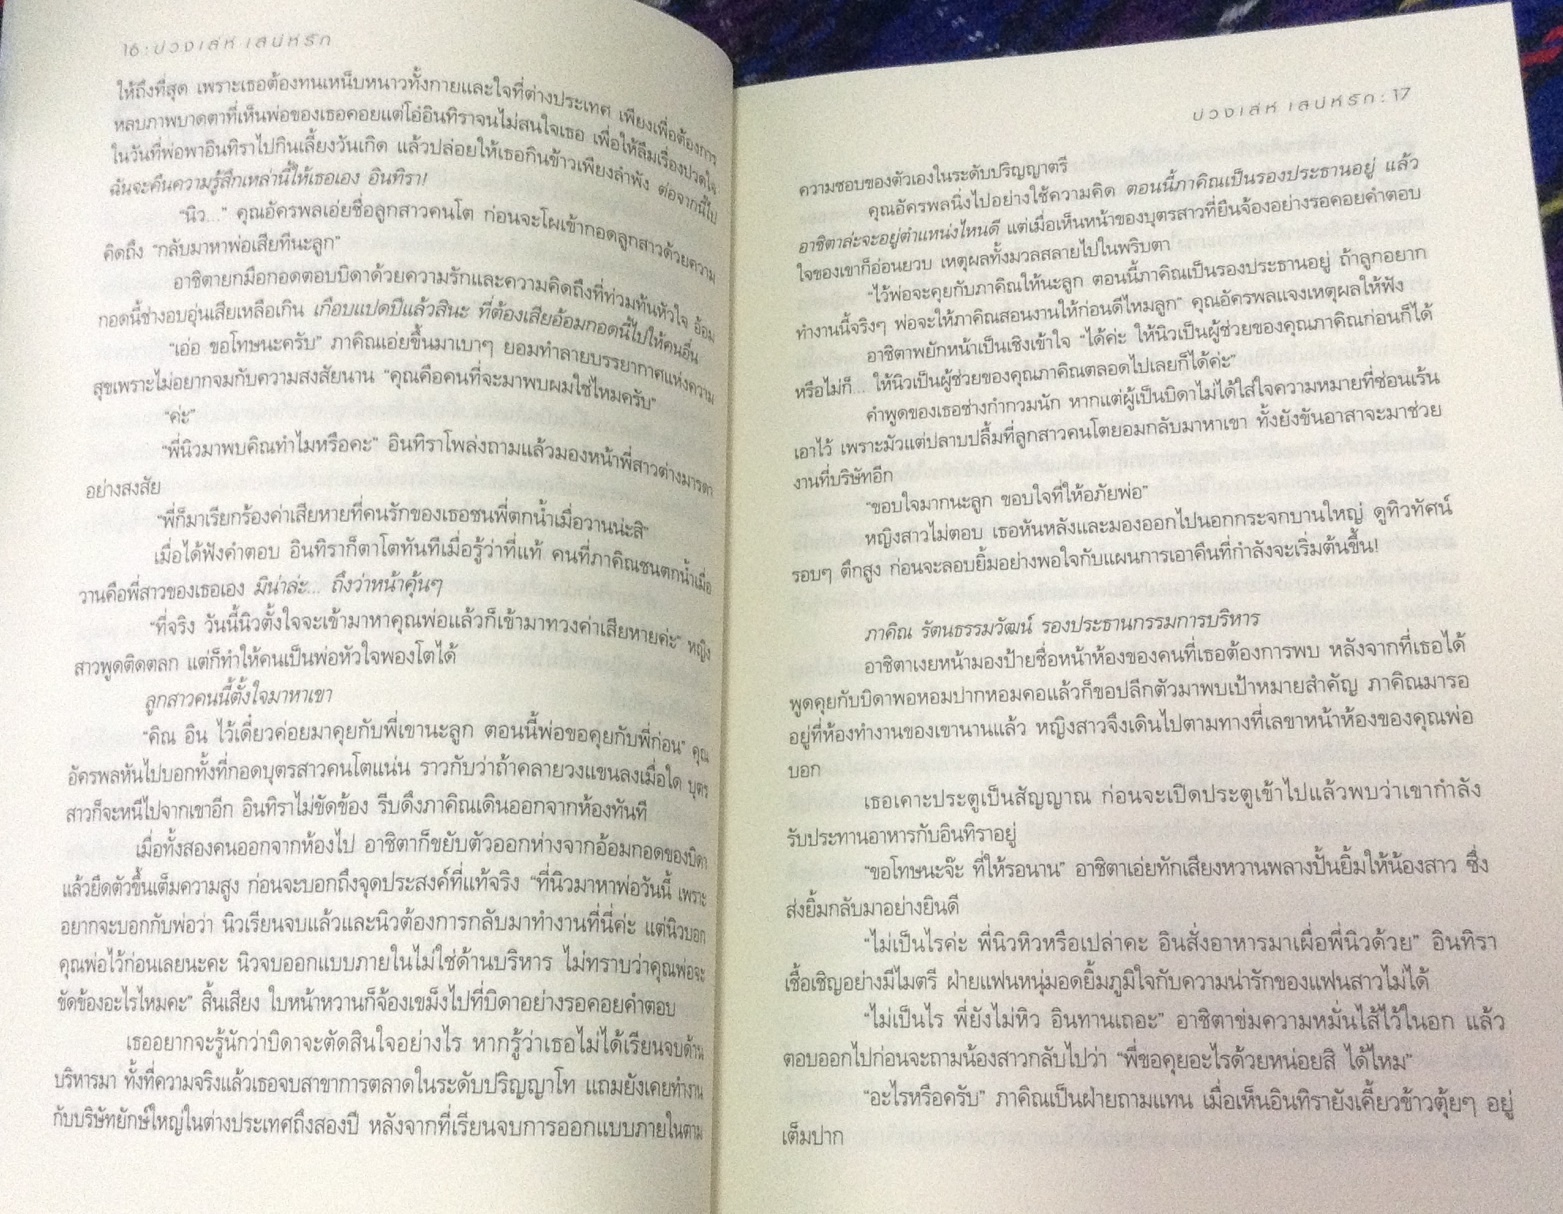 16 : บ่วงเล่ห์ เสน่หรัก
ให้ถึงที่สุด เพราะเธอต้องทนเหน็บหนาวทั้งกายและใจที่ต่างประเทศ เพียงเพื่อต้องการ
หลบภาพบาดตาที่เห็นพ่อของเธอคอยแต่โอ๋อินทิราจนไม่สนใจเธอ เพื่อให้ลืมเรื่องปวดใจ
ในวันที่พ่อพาอินทิราไปกินเลี้ยงวันเกิด แล้วปล่อยให้เธอกินข้าวเพียงลำพัง ต่อจากนี้ไป
ฉันจะคืนความรู้สึกเหล่านี้ให้เธอเอง อินทิรา!
“นิว...” คุณอัครพลเอ่ยชื่อลูกสาวคนโต ก่อนจะโผเข้ากอดลูกสาวด้วยความ
คิดถึง “กลับมาหาพ่อเสียทีนะลูก”
อาชิตายกมือกอดตอบบิดาด้วยความรักและความคิดถึงที่ท่วมท้นหัวใจ อ้อม
กอดนี้ช่างอบอุ่นเสียเหลือเกิน เกือบแปดปีแล้วสินะ ที่ต้องเสียอ้อมกอดนี้ไปให้คนอื่น
“เอ่อ ขอโทษนะครับ” ภาคิณเอ่ยขึ้นมาเบาๆ ยอมทำลายบรรยากาศแห่งความ
สุขเพราะไม่อยากจมกับความสงสัยนาน “คุณคือคนที่จะมาพบผมใช่ไหมครับ”
“ค่ะ”
“พี่นิวมาพบคิณทำไมหรือคะ” อินทิราโพล่งถามแล้วมองหน้าพี่สาวต่างมารดา
อย่างสงสัย
“พี่ก็มาเรียกร้องค่าเสียหายที่คนรักของเธอชนพี่ตกน้ำเมื่อวานน่ะสิ”
เมื่อได้ฟังคำตอบ อินทิราก็ตาโตทันทีเมื่อรู้ว่าที่แท้ คนที่ภาคิณชนตกน้ำเมื่อ
วานคือพี่สาวของเธอเอง มิน่าล่ะ... ถึงว่าหน้าคุ้นๆ
“ที่จริง วันนี้นิวตั้งใจจะเข้ามาหาคุณพ่อแล้วก็เข้ามาทวงค่าเสียหายค่ะ” หญิง
สาวพูดติดตลก แต่ก็ทำให้คนเป็นพ่อหัวใจพองโตได้
ลูกสาวคนนี้ตั้งใจมาหาเขา
“คิณ อิน ไว้เดี๋ยวค่อยมาคุยกับพี่เขานะลูก ตอนนี้พ่อขอคุยกับพี่ก่อน” คุณ
อัครพลหันไปบอกทั้งที่กอดบุตรสาวคนโตแน่น ราวกับว่าถ้าคลายวงแขนลงเมื่อใด บุตร
สาวก็จะหนีไปจากเขาอีก อินทิราไม่ขัดข้อง รีบดึงภาคิณเดินออกจากห้องทันที
เมื่อทั้งสองคนออกจากห้องไป อาชิตาก็ขยับตัวออกห่างจากอ้อมกอดของบิดา
แล้วยืดตัวขึ้นเต็มความสูง ก่อนจะบอกถึงจุดประสงค์ที่แท้จริง “ที่นิวมาหาพ่อวันนี้ เพราะ
อยากจะบอกกับพ่อว่า นิวเรียนจบแล้วและนิวต้องการกลับมาทำงานที่นี่ค่ะ แต่นิวบอก
คุณพ่อไว้ก่อนเลยนะคะ นิวจบออกแบบภายในไม่ใช่ด้านบริหาร ไม่ทราบว่าคุณพ่อจะ
ขัดข้องอะไรไหมคะ” สิ้นเสียง ใบหน้าหวานก็จ้องเขม็งไปที่บิดาอย่างรอคอยคำตอบ
เธออยากจะรู้นักว่าบิดาจะตัดสินใจอย่างไร หากรู้ว่าเธอไม่ได้เรียนจบด้าน
บริหารมา ทั้งที่ความจริงแล้วเธอจบสาขาการตลาดในระดับปริญญาโท แถมยังเคยทำงาน
กับบริษัทยักษ์ใหญ่ในต่างประเทศถึงสองปี หลังจากที่เรียนจบการออกแบบภายในตาม
บ่วงเล่ห์ เสน่หรัก : 17
ความชอบของตัวเองในระดับปริญญาตรี
คุณอัครพลนิ่งไปอย่างใช้ความคิด ตอนนี้ภาคิณเป็นรองประธานอยู่ แล้ว
อาชิตาล่ะจะอยู่ตำแหน่งไหนดี แต่เมื่อเห็นหน้าของบุตรสาวที่ยืนจ้องอย่างรอคอยคำตอบ
ใจของเขาก็อ่อนยวบ เหตุผลทั้งมวลสลายไปในพริบตา
“ไว้พ่อจะคุยกับภาคิณให้นะลูก ตอนนี้ภาคิณเป็นรองประธานอยู่ ถ้าลูกอยาก
ทำงานนี้จริงๆ พ่อจะให้ภาคิณสอนงานให้ก่อนดีไหมลูก” คุณอัครพลแจงเหตุผลให้ฟัง
อาชิตาพยักหน้าเป็นเชิงเข้าใจ “ได้ค่ะ ให้นิวเป็นผู้ช่วยของคุณภาคิณก่อนก็ได้
หรือไม่ก็... ให้นิวเป็นผู้ช่วยของคุณภาคิณตลอดไปเลยก็ได้ค่ะ”
คำพูดของเธอช่างกำกวมนัก หากแต่ผู้เป็นบิดาไม่ได้ใส่ใจความหมายที่ซ่อนเร้น
เอาไว้ เพราะมัวแต่ปลาบปลื้มที่ลูกสาวคนโตยอมกลับมาหาเขา ทั้งยังขันอาสาจะมาช่วย
งานที่บริษัทอีก
“ขอบใจมากนะลูก ขอบใจที่ให้อภัยพ่อ”
หญิงสาวไม่ตอบ เธอหันหลังและมองออกไปนอกกระจกบานใหญ่ ดูทิวทัศน์
รอบๆ ตึกสูง ก่อนจะลอบยิ้มอย่างพอใจกับแผนการเอาคืนที่กำลังจะเริ่มต้นขึ้น!
ภาคิณ รัตนธรรมวัฒน์ รองประธานกรรมการบริหาร
อาชิตาเงยหน้ามองป้ายชื่อหน้าห้องของคนที่เธอต้องการพบ หลังจากที่เธอได้
พูดคุยกับบิดาพอหอมปากหอมคอแล้วก็ขอปลีกตัวมาพบเป้าหมายสำคัญ ภาคิณมารอ
อยู่ที่ห้องทำงานของเขานานแล้ว หญิงสาวจึงเดินไปตามทางที่เลขาหน้าห้องของคุณพ่อ
บอก
เธอเคาะประตูเป็นสัญญาณ ก่อนจะเปิดประตูเข้าไปแล้วพบว่าเขากำลัง
รับประทานอาหารกับอินทิราอยู่
“ขอโทษนะจ๊ะ ที่ให้รอนาน” อาชิตาเอ่ยทักเสียงหวานพลางปั้นยิ้มให้น้องสาว ซึ่ง
ส่งยิ้มกลับมาอย่างยินดี
“ไม่เป็นไรค่ะ พี่นิวหิวหรือเปล่าคะ อินสั่งอาหารมาเผื่อพี่นิวด้วย” อินทิรา
เชื้อเชิญอย่างมีไมตรี ฝ่ายแฟนหนุ่มอดยิ้มภูมิใจกับความน่ารักของแฟนสาวไม่ได้
“ไม่เป็นไร พี่ยังไม่หิว อินทานเถอะ” อาชิตาข่มความหมั่นไส้ไว้ในอก แล้ว
ตอบออกไปก่อนจะถามน้องสาวกลับไปว่า “พี่ขอคุยอะไรด้วยหน่อยสิ ได้ไหม”
“อะไรหรือครับ” ภาคิณเป็นฝ่ายถามแทน เมื่อเห็นอินทิรายังเคี้ยวข้าวตุ้ยๆ อยู่
เต็มปาก